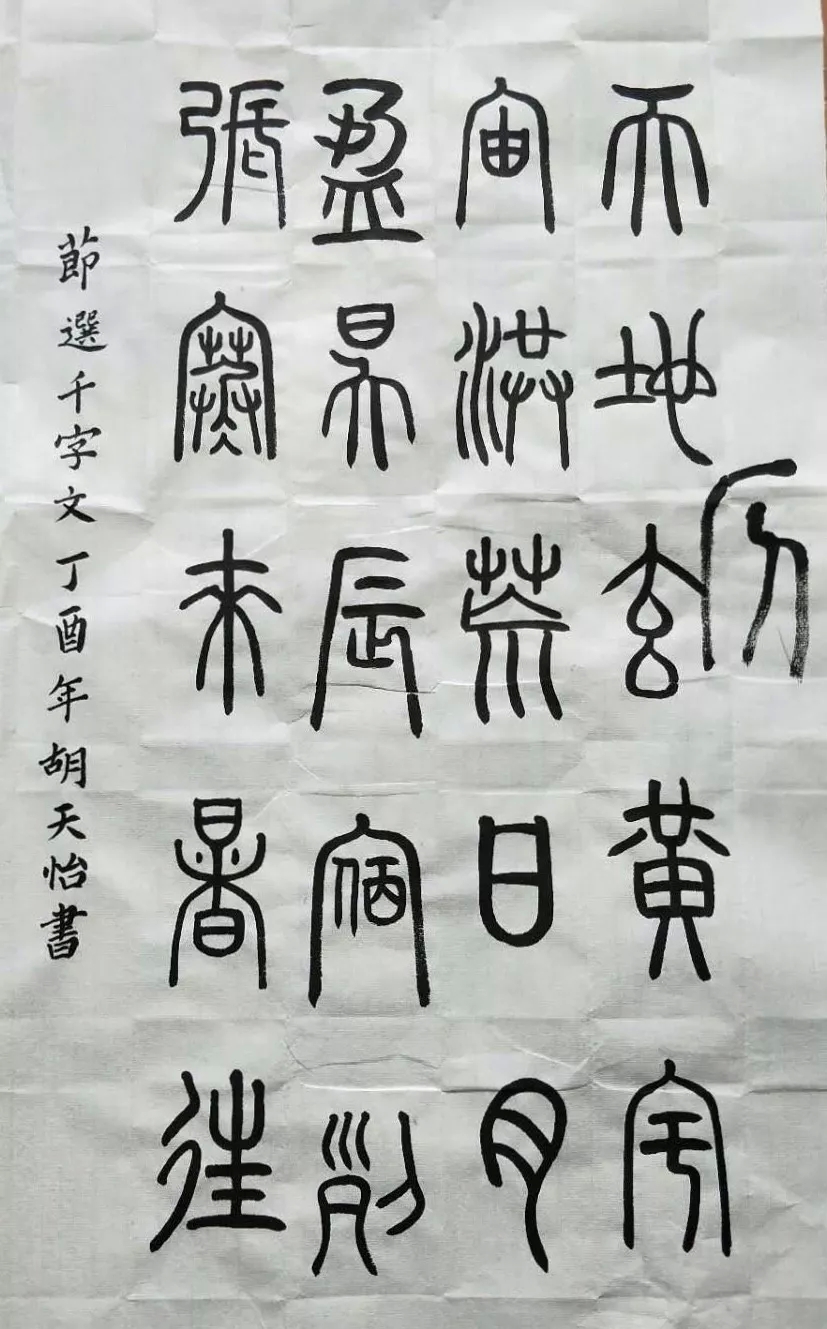 天地玄黃宇
宙洪荒日月
盈昃辰宿列
張寒來暑往
節選千字文丁酉年胡天怡書